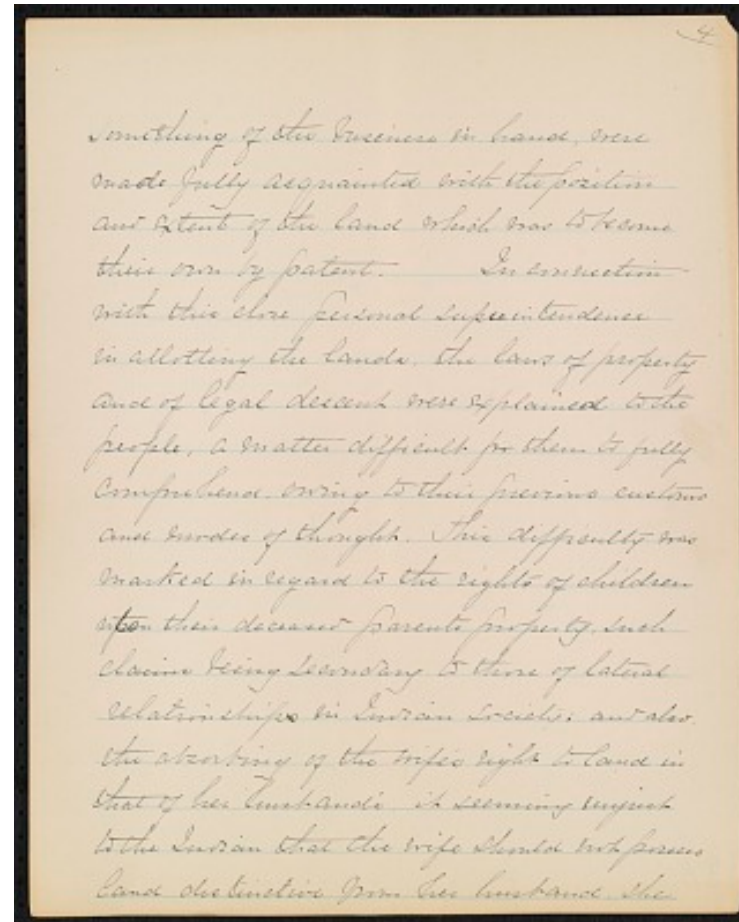 4
something of the business in hand, were
made fully acquainted with the position
and extent of the land which was to become
their own by patent. In connection
with this close personal superintendence
in allotting the lands, the laws of property
and of legal descent were explained to the
people, a matter difficult for them to fully
comprehend owing to their previous customs
and modes of thought. This difficulty was
marked in regard to the rights of children
upon their deceased parents property, such
claims being secondary to those of lateral
relationships in Indian society; and also
the absorbing of the wife's right to land in
that of her husband's it seeming unjust
to the Indian that the wife should not possess
land distinctive from her husband. She